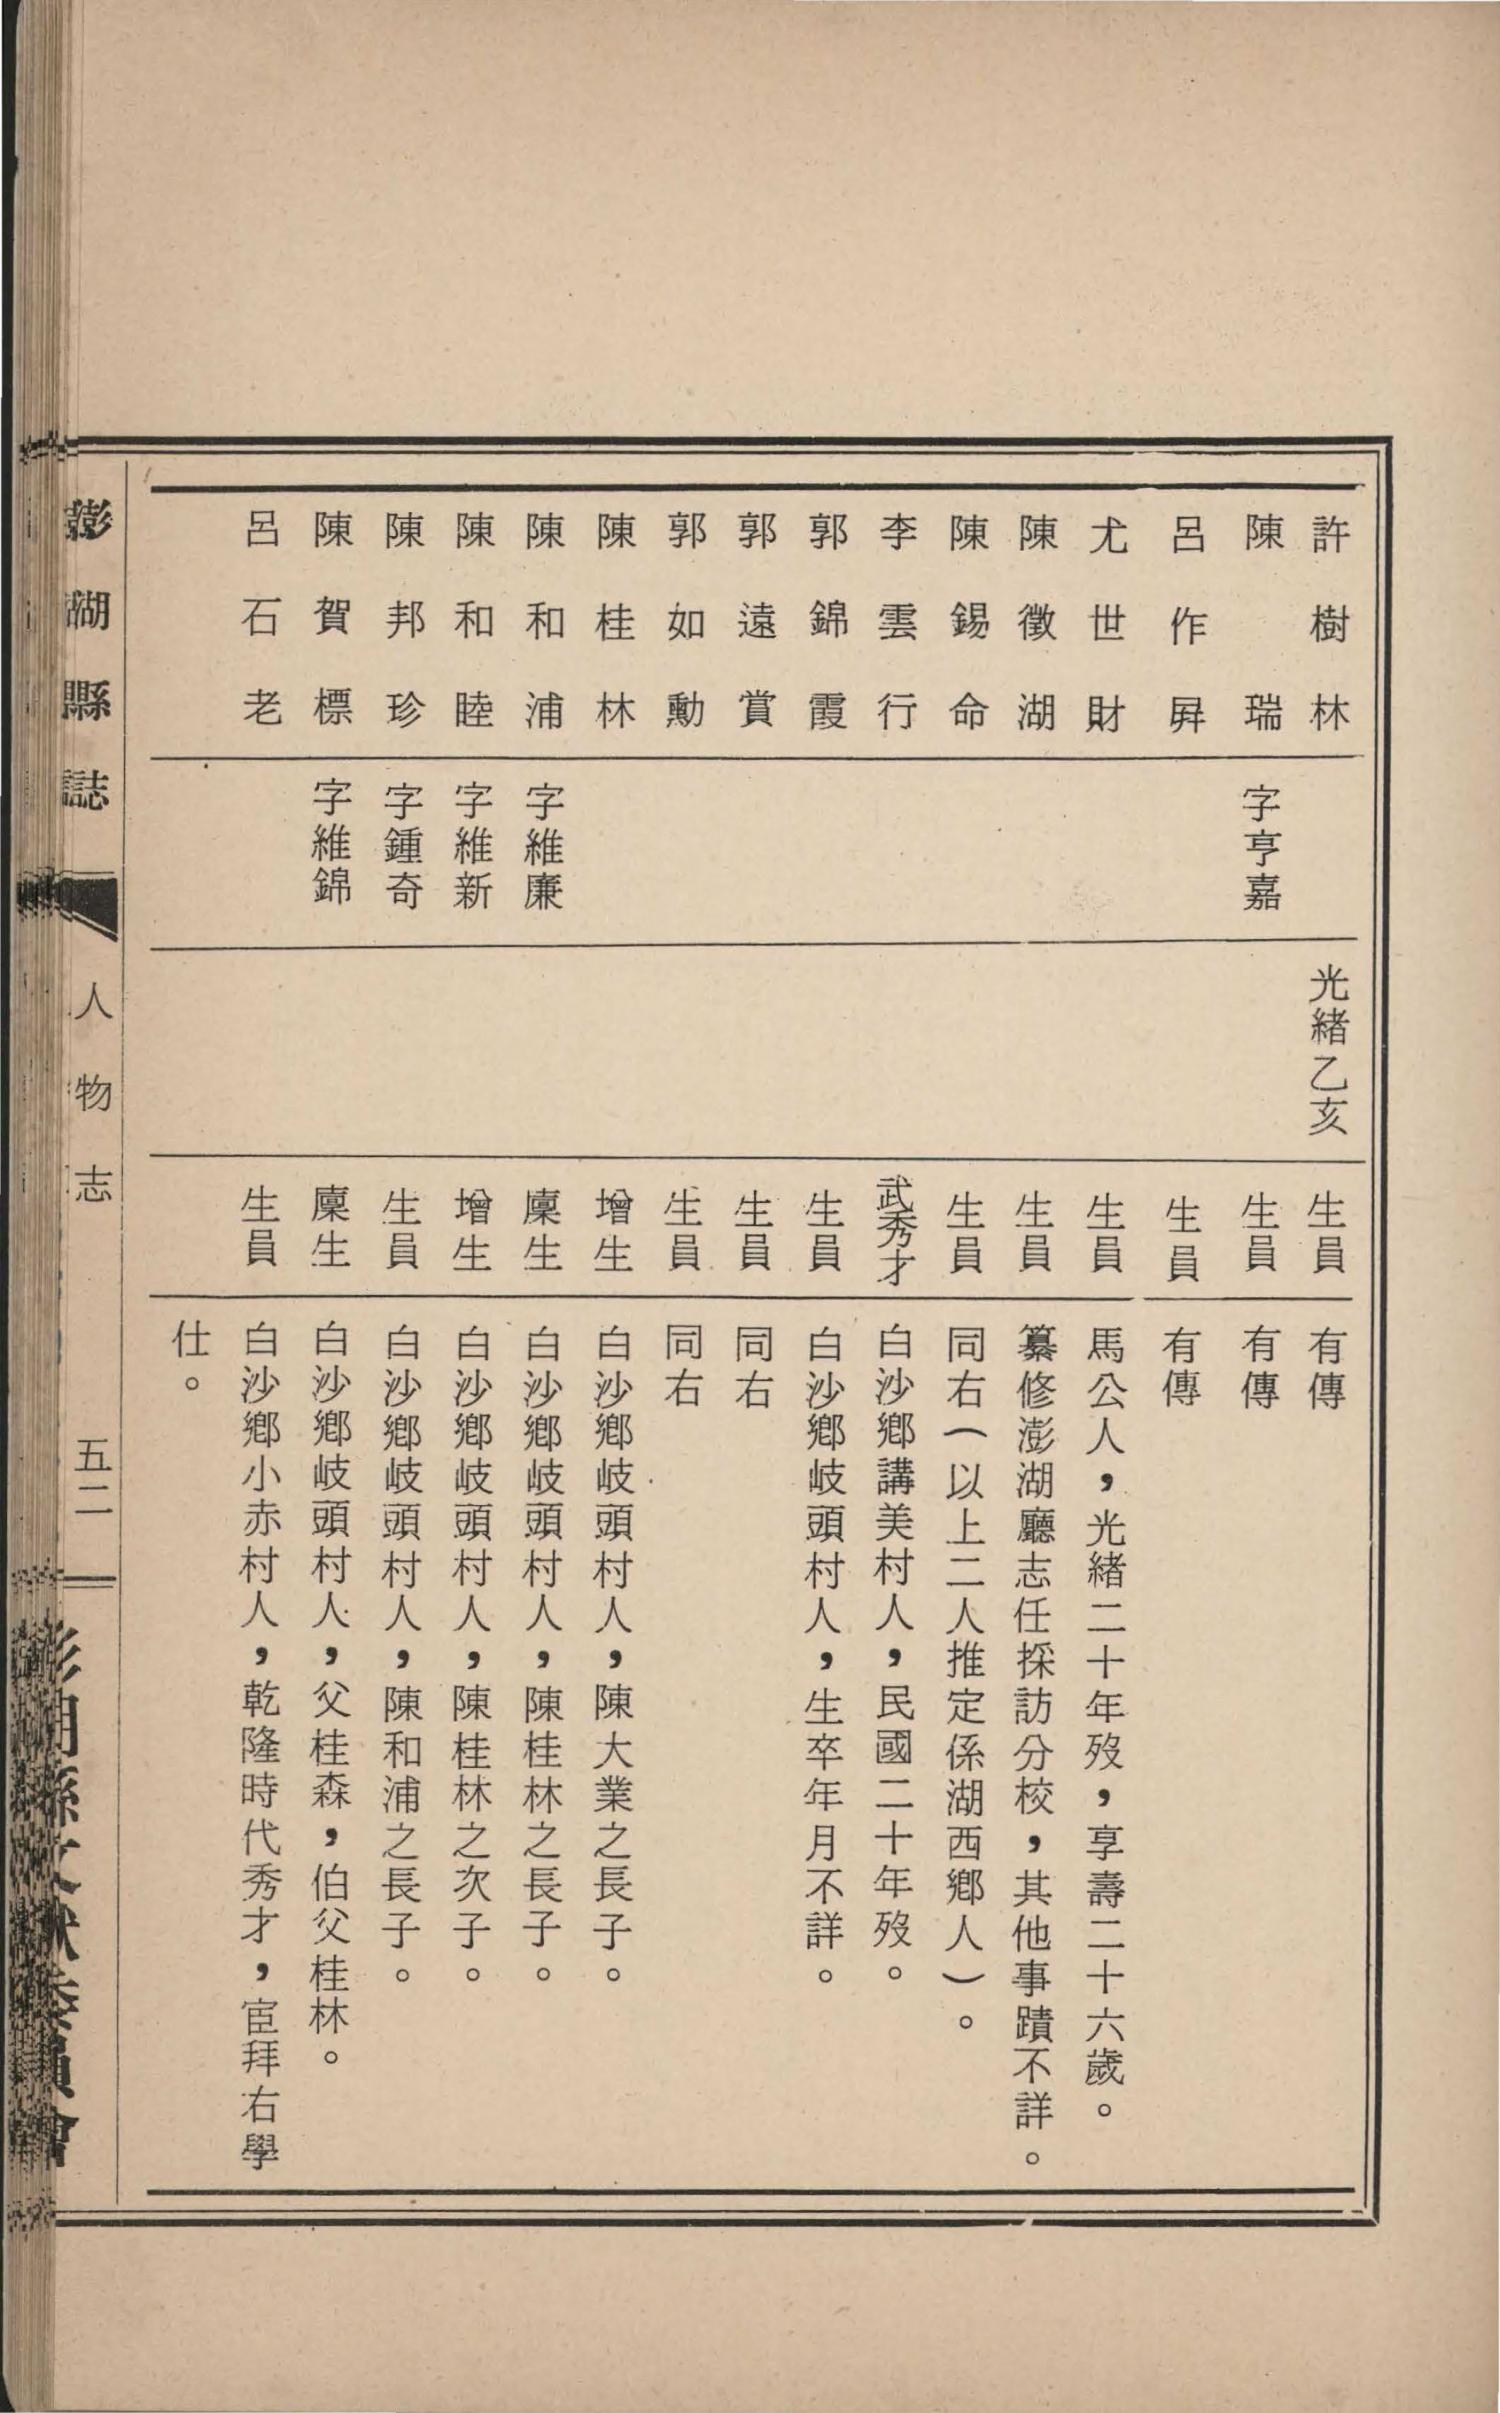 許樹林 光緒乙亥 生員 有傳
陳瑞 字亨嘉 生員 有傳
呂作昇 生員 有傳
尤世財 生員 馬公人，光緒二十年歿，享壽二十六歲。
陳徵湖 生員 纂修澎湖廳志任採訪分校，其他事蹟不詳。
陳錫命 生員 同右（以上二人推定係湖西鄉人）。
李雲行 武秀才 白沙鄉講美村人，民國二十年歿。
郭錦霞 生員 白沙鄉岐頭村人，生卒年月不詳。
郭遠賞 生員 同右
郭如勳 生員 同右
陳桂林 增生 白沙鄉岐頭村人，陳大業之長子。
陳和浦 字維廉 廩生 白沙鄉岐頭村人，陳桂林之長子。
陳和睦 字維新 增生 白沙鄉岐頭村人，陳桂林之次子。
陳邦珍 字鍾奇 生員 白沙鄉岐頭村人，陳和浦之長子。
陳賀標 字維錦 廩生 白沙鄉岐頭村人，父桂森，伯父桂林。
呂石老 生員 白沙鄉小赤村人，乾隆時代秀才，宦拜右學
仕。
澎湖縣誌 人物志 五二 澎湖縣文獻委員會